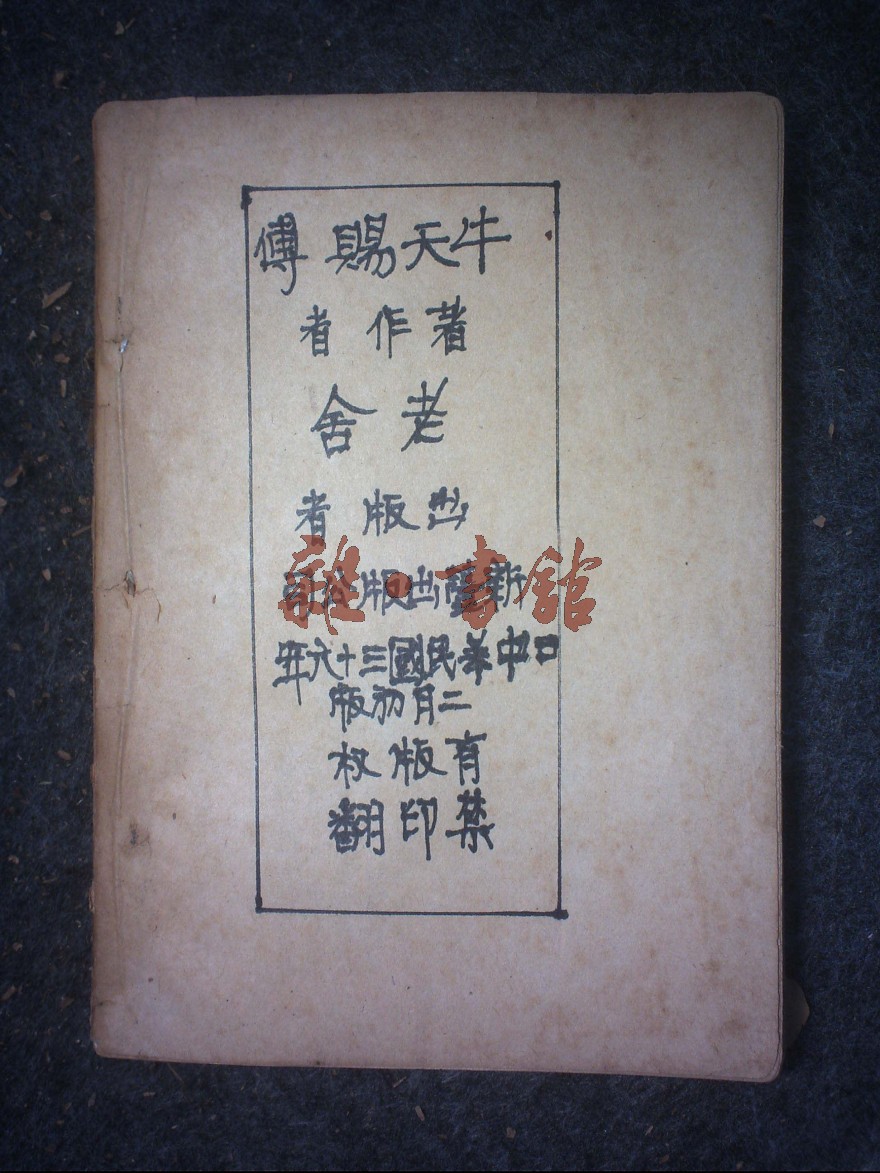 牛天賜傳
著作者
老舍
出版者
新豐出版公司
雜·書館
口中華民國三十六年
二月初版
有版权
禁印翻